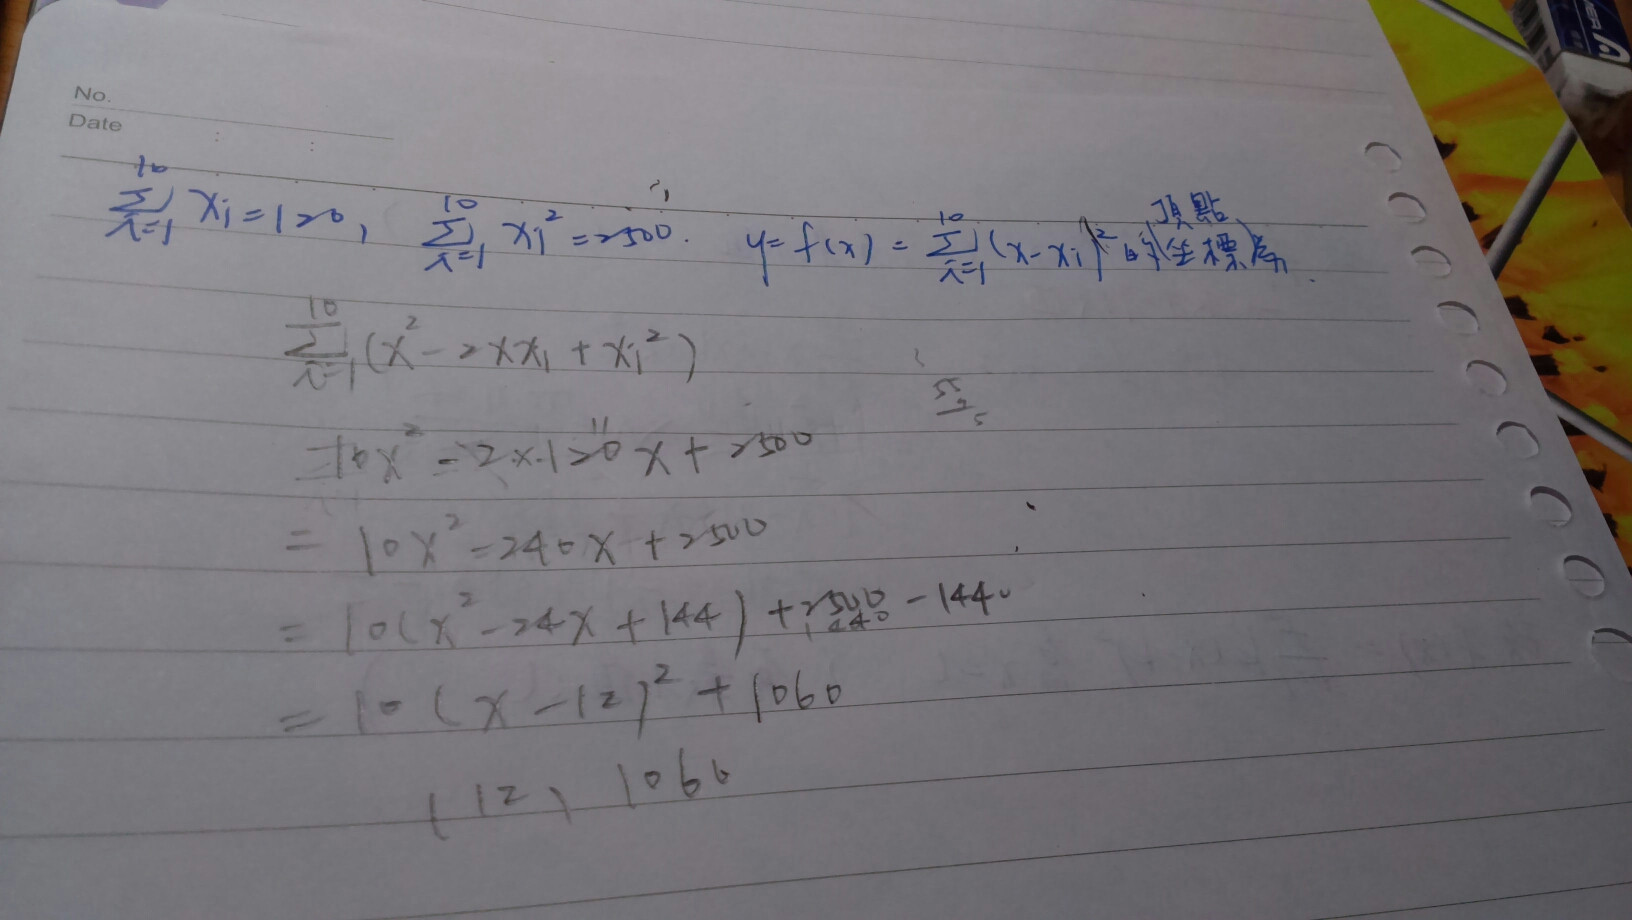 No.
Date : :
∑_{i=1}^{10} xi = 120, ∑_{i=1}^{10} xi² = 2500. y = f(x) = ∑_{i=1}^{10} (x - xi)² 的頂點坐標為
∑_{i=1}^{10} (x² - 2xxi + xi²)
= 10x² - 2×120x + 2500
= 10x² - 240x + 2500
= 10(x² - 24x + 144) + 2500 - 1440
= 10(x - 12)² + 1060
(12, 1060